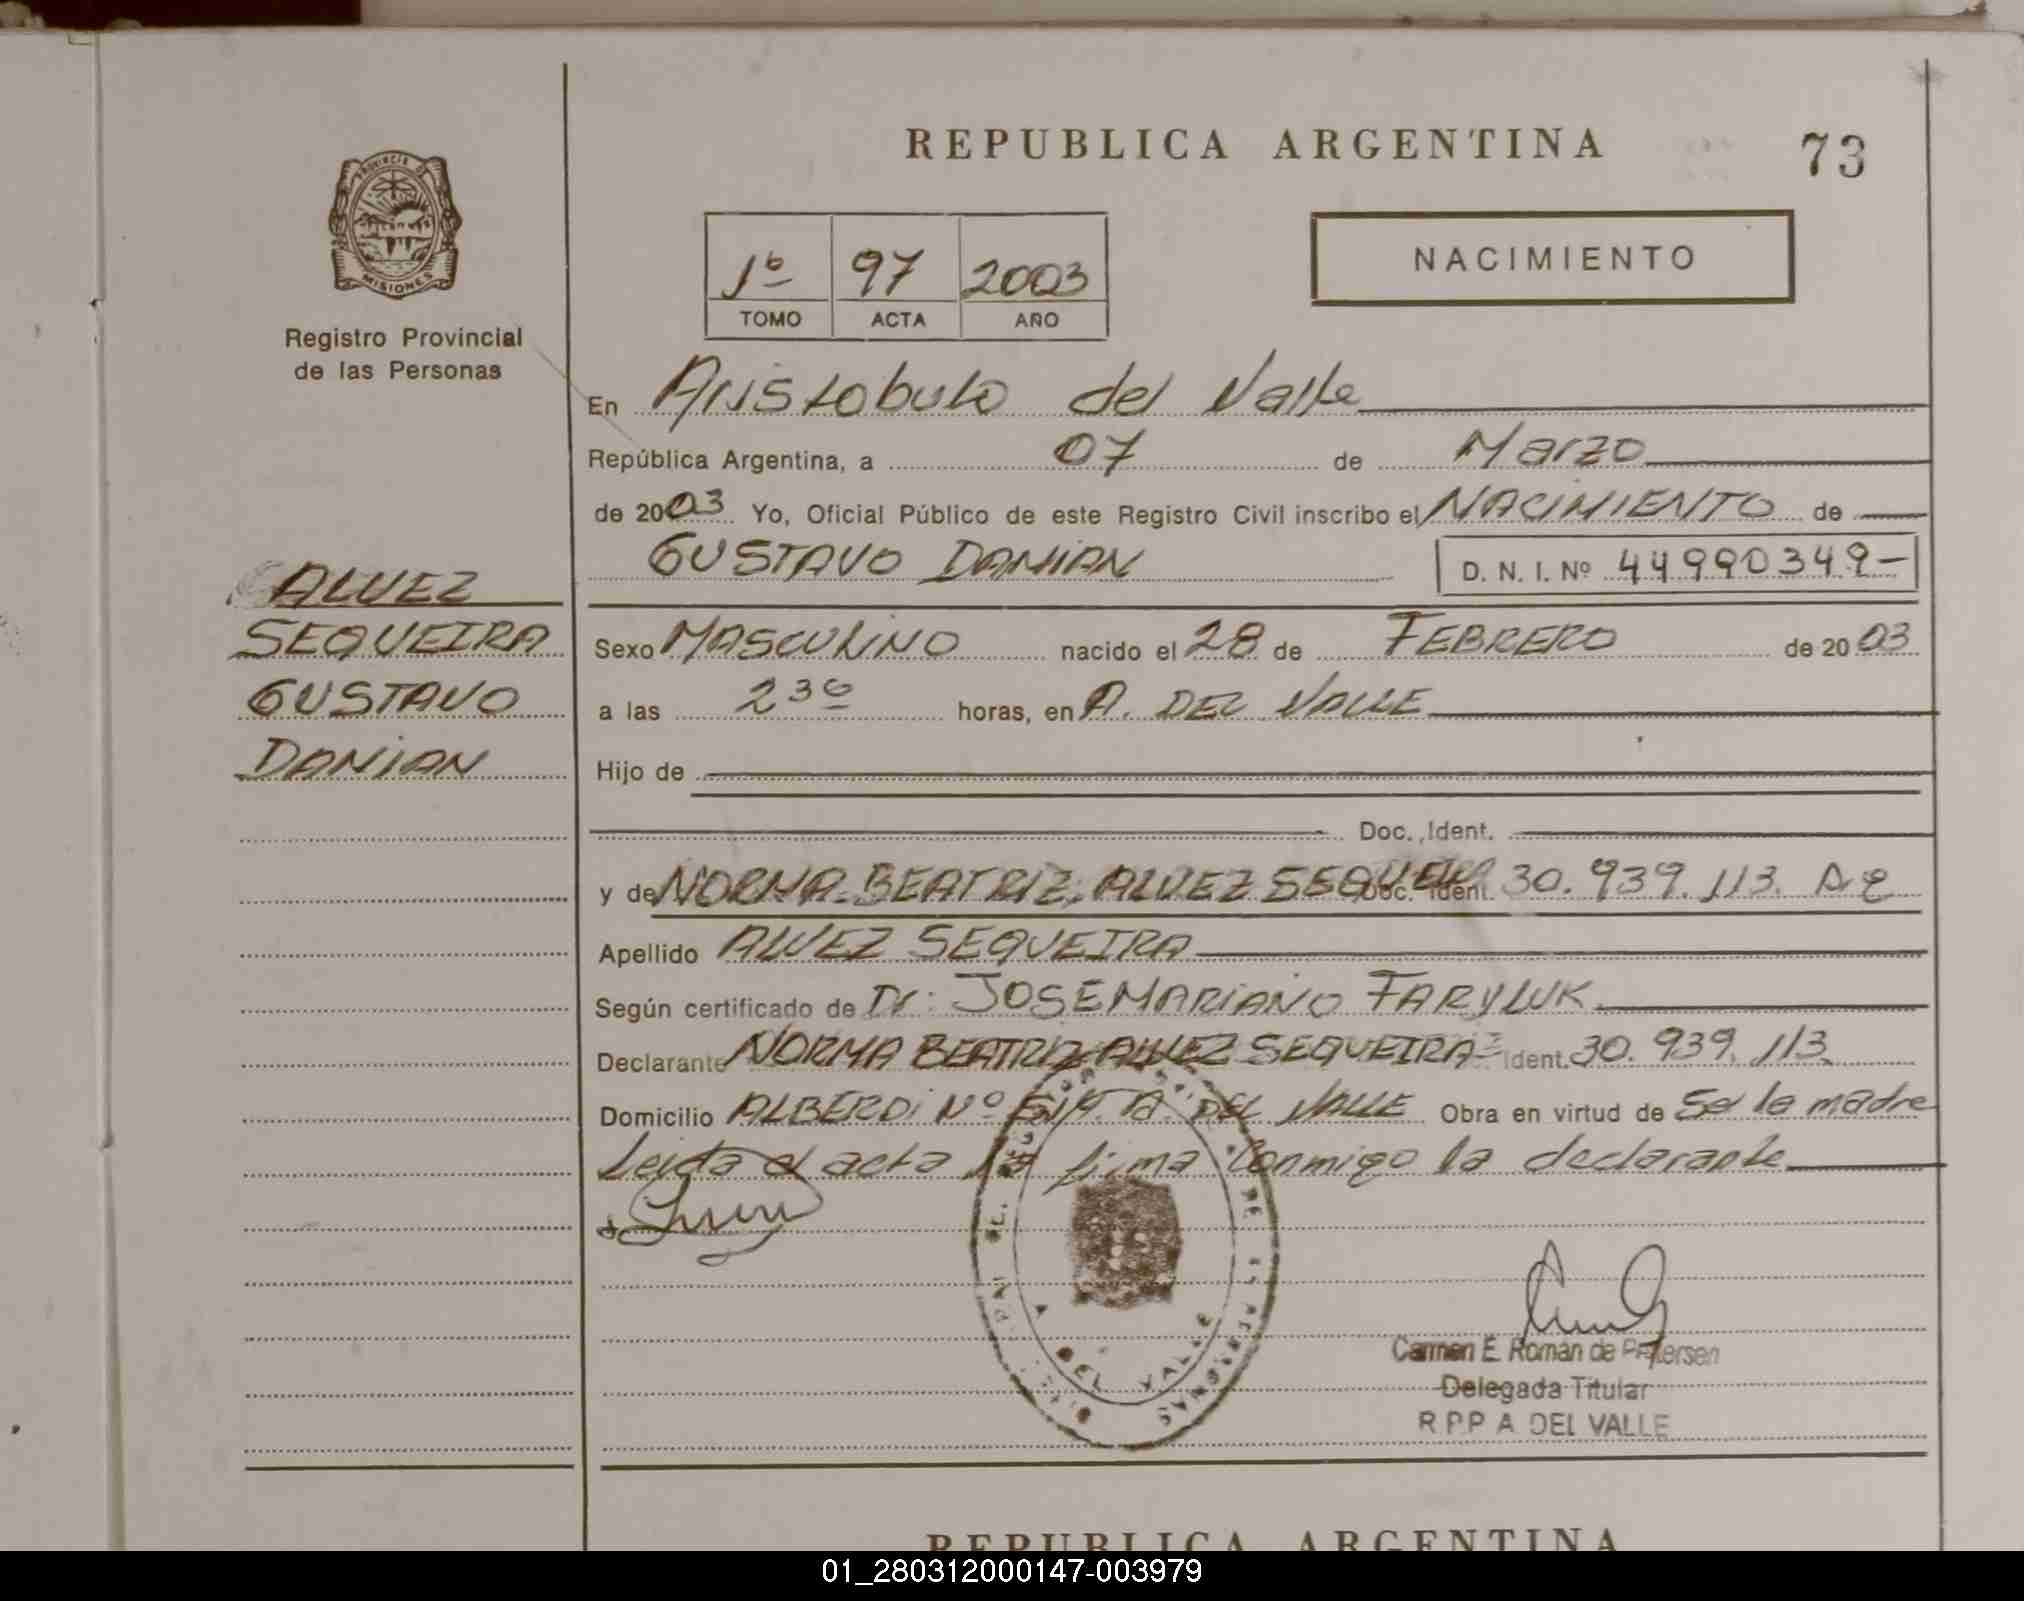 REPUBLICA ARGENTINA
73
PROVINCIA DE
MISIONES
Registro Provincial
de las Personas
1º 97 2003
TOMO ACTA AÑO
NACIMIENTO
En Aristobulo del Valle
República Argentina, a 07 de Marzo
de 2003 Yo, Oficial Público de este Registro Civil inscribo el NACIMIENTO de
GUSTAVO DAMIAN
D. N. I. Nº 44990349-
ALVEZ
SEQUEIRA
GUSTAVO
DAMIAN
Sexo MASCULINO nacido el 28 de FEBRERO de 2003
a las 2 30 horas, en A. DEL VALLE
Hijo de
Doc. Ident.
y de NORMA BEATRIZ ALVEZ SEQUEIRA Doc. Ident. 30.939.113.
Apellido ALVEZ SEQUEIRA
Según certificado de Dr: JOSE MARIANO FARYLUK
Declarante NORMA BEATRIZ ALVEZ SEQUEIRA Ident. 30.939.113
Domicilio ALBERDI Nº S/Nº A. DEL VALLE Obra en virtud de Ser la madre
Leida el acta la firma conmigo la declarante
A DEL VALLE
Carmen E. Román de Petersen
Delegada Titular
R P P A DEL VALLE
REPUBLICA ARGENTINA
01_280312000147-003979